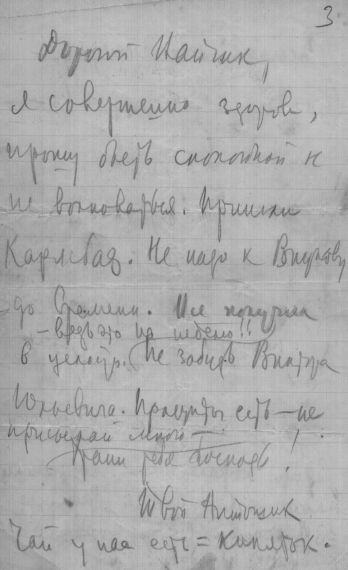 3
Дорогой Наичик,
я совершенно здоров,
прошу быть спокойной и
не волноваться. Пришли
Карлсбад. Не надо к Внукову
до времени. Все получил
– ведь это на неделю!!
в целости. Не забудь Виктора
Юрьевича. Продукты есть – не
присылай много!
Храни тебя Господь!
Твой Антончик
Чай у нас есть = кипяток.